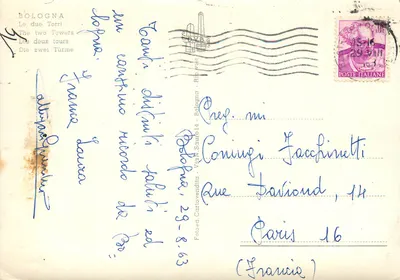 BOLOGNA
Le due Torri
The two Towers
Les deux tours
Die zwei Türme
Bologna, 29-8-63
Tanti distinti saluti ed
un carissimo ricordo da Bo=
logna.
Franca Laura
POSTE ITALIANE
Preg. mi
Coniugi Jacchinetti
Rue Davioud, 14
Paris 16
(Francia)